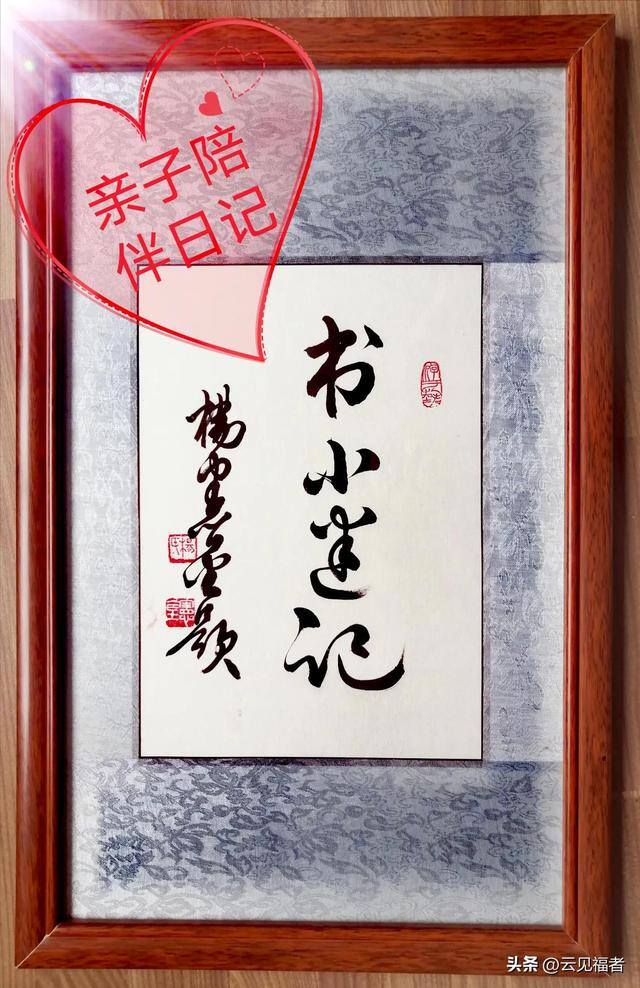 亲子陪
伴日记
书小迷记
楊憲金题
头条 @云见福者